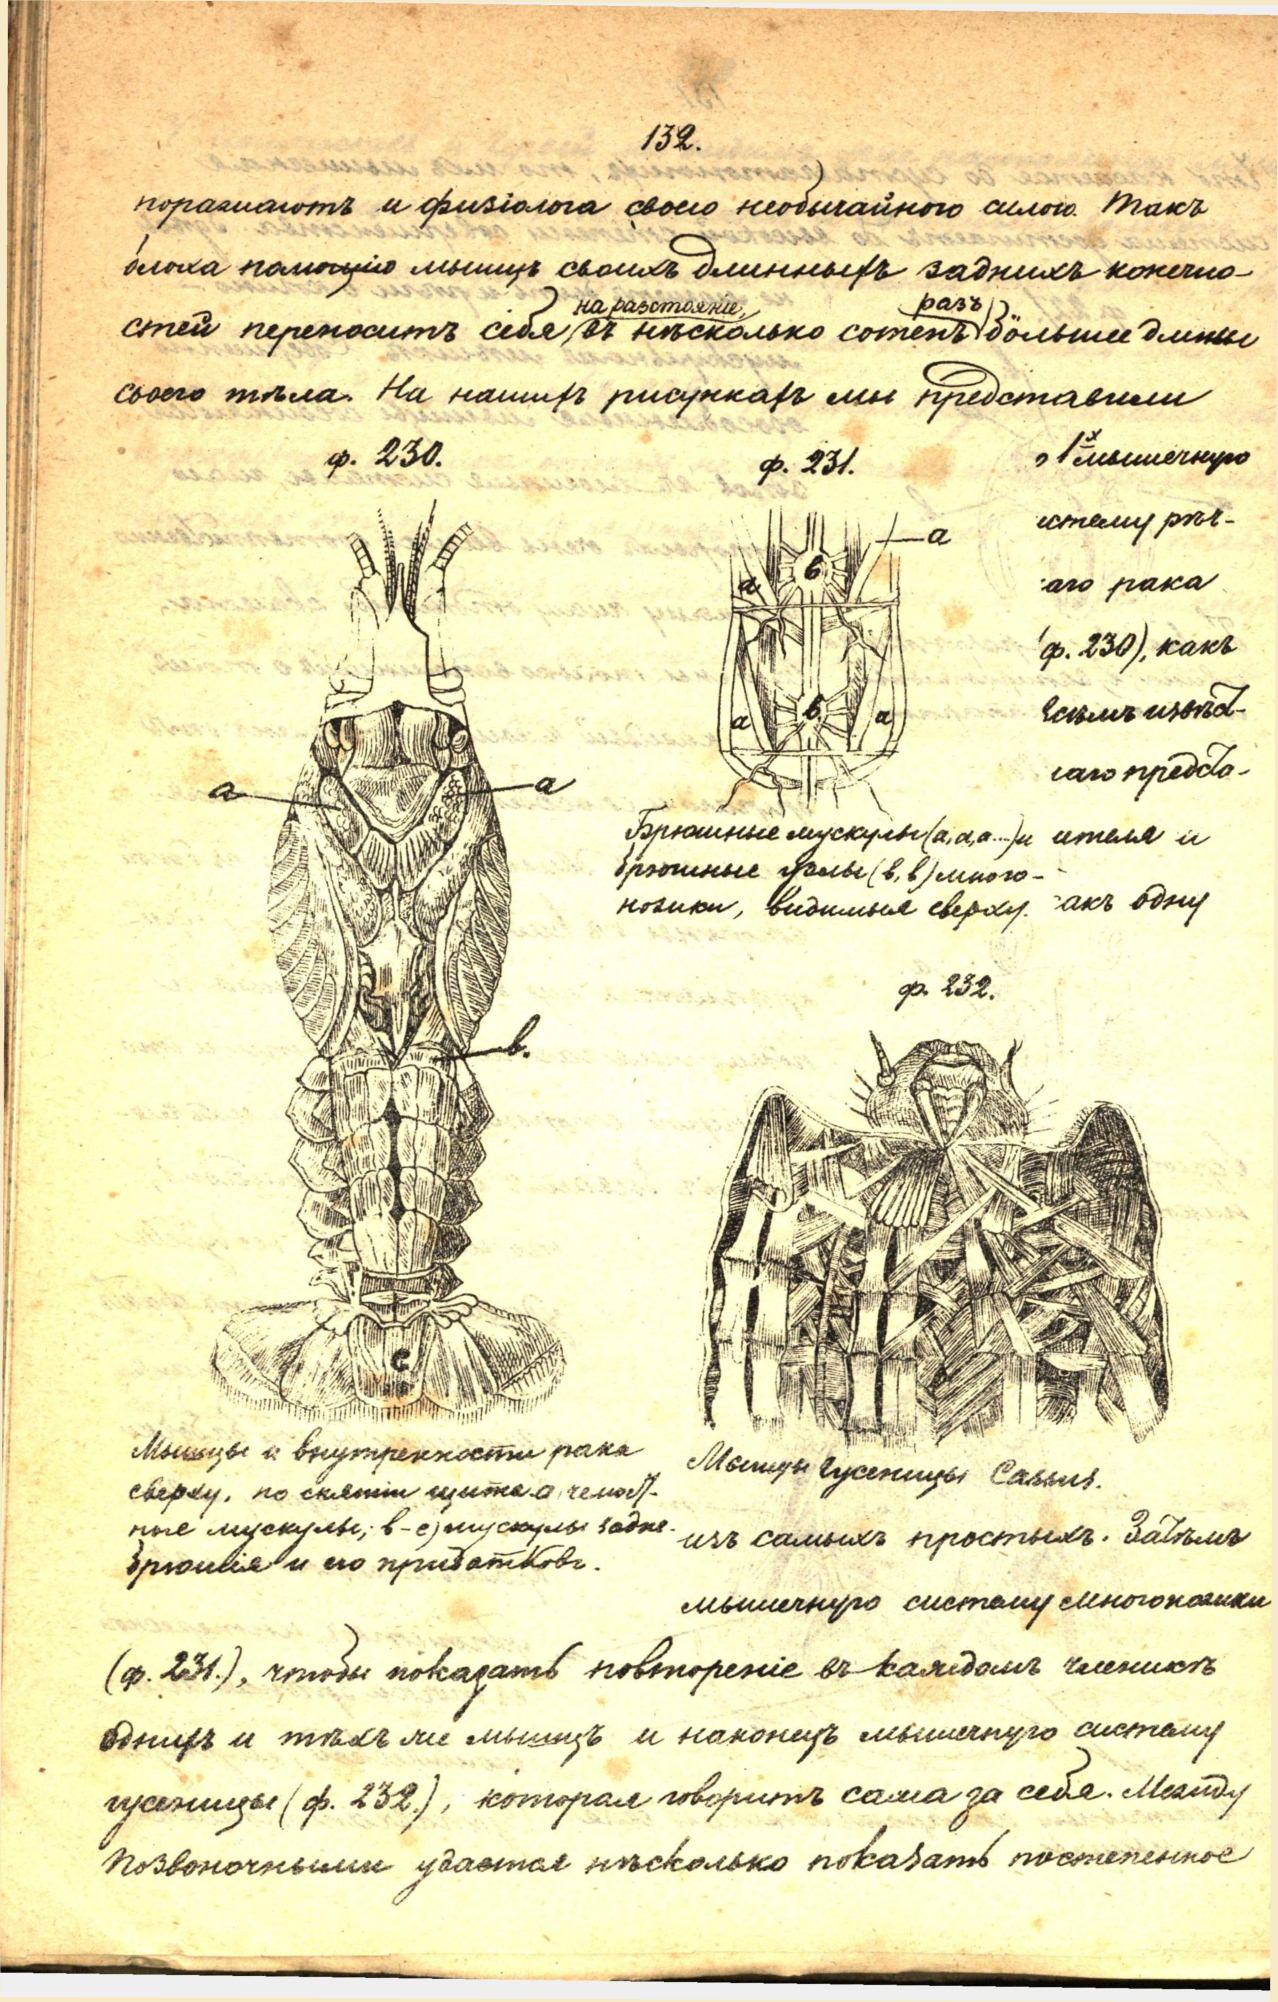 132.
поражаютъ и физiолога своею необычайною силою. Такъ
блоха помощiю мышцъ своихъ длинныхъ заднихъ конечно-
на разстоянiе, разъ
стей переноситъ себя въ нѣсколько сотенъ большее длины
своего тѣла. На нашихъ рисункахъ мы представили
ф. 230.
ф. 231.
1х мышечную
истему рѣч-
аго рака
(ф. 230), какъ
всѣмъ извѣст-
наго предста-
a
a
a
a
в
в
a
a
Брюшные мускулы (а, а, а...) и
брюшные узлы (в, в) много-
ножки, видимыя сверху.
ителя и
акъ одну
ф. 232.
в.
с
Мышцы и внутренности рака
сверху, по снятiи щита. а, челюст-
ные мускулы; в-с) мускулы задне-
брюшiя и его придатковъ.
Мышцы гусеницы
изъ самыхъ простыхъ. Затѣмъ
мышечную систему многоножки
(ф. 231.), чтобы показать повторенiе въ каждомъ членикѣ
однихъ и тѣхъ же мышцъ и наконецъ мышечную систему
гусеницы (ф. 232.), которая говоритъ сама за себя. Между
позвоночными удается нѣсколько показать постепенное